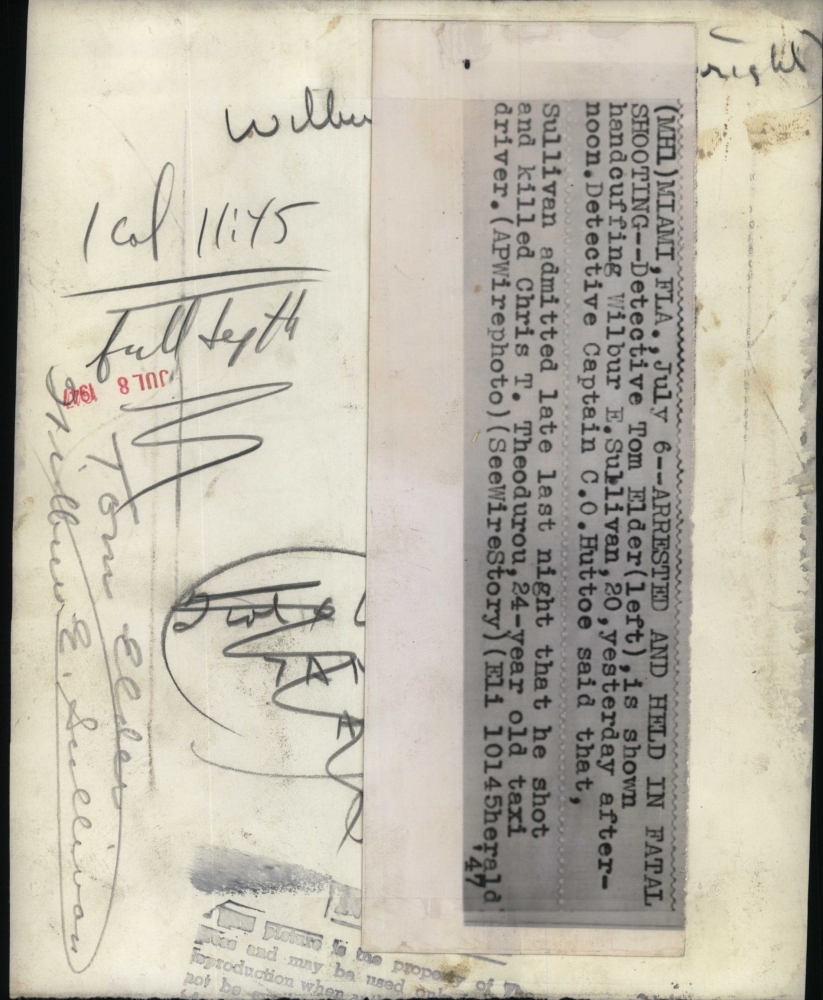 right)
Wilbur
1 col 11:45
full depth
JUL 8 1947
Tom Elder
Wilbur E. Sullivan
(MH1)MIAMI,FLA.,July 6--ARRESTED AND HELD IN FATAL
SHOOTING--Detective Tom Elder(left),is shown
handcuffing Wilbur E.Sullivan,20,yesterday after-
noon.Detective Captain C.O.Huttoe said that,
Sullivan admitted late last night that he shot
and killed Chris T. Theodurou,24-year old taxi
driver.(APWirephoto)(SeeWireStory)(Eli 10145herald
'47
This picture is the property of
and may be used only
reproduction when
not be